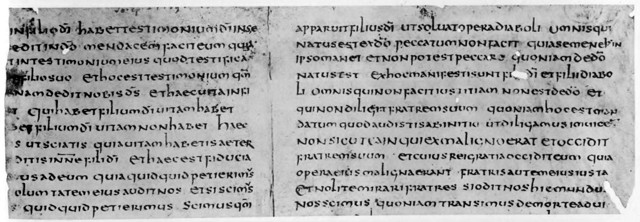 in filio dī habet testimonium dī in se
edit in dō mendacem facit eum quia
it in testimonium eius quod testifica
filio suo et hoc est testimonium qm̄
nam dedit nobis ds̄ et haec uita in fi
t qui habet filium dī uitam habet
bet filium dī uitam non habet haec
s ut sciatis quia uitam habetis aeter
ditis in nē fili dī et haec est fiducia
us ad eum quia quidquid petierim̄
oluntatem eius audit nos et si scim̄
quidquid petierimus scimus qm̄
apparuit filius dī ut soluat opera diaboli omnis qui
natus est ex dō peccatum non facit quia semen in
ipso manet et non potest peccare quoniam de dō
natus est ex hoc manifesti sunt fili dī et fili diabo
li omnis qui non facit iustitiam non est de dō et
qui non diligit fratrem suum quoniam hoc est man
datum quod audistis ab initio ut diligamus inuice
non sicut cain qui ex maligno erat et occidit
fratrem suum et cuius rei gratia occidit eum quia
opera eius maligna erant fratris autem eius iusta
et nolite mirari fratres si odit nos hic mundu
nos scimus quoniam transimus de morte ad ui